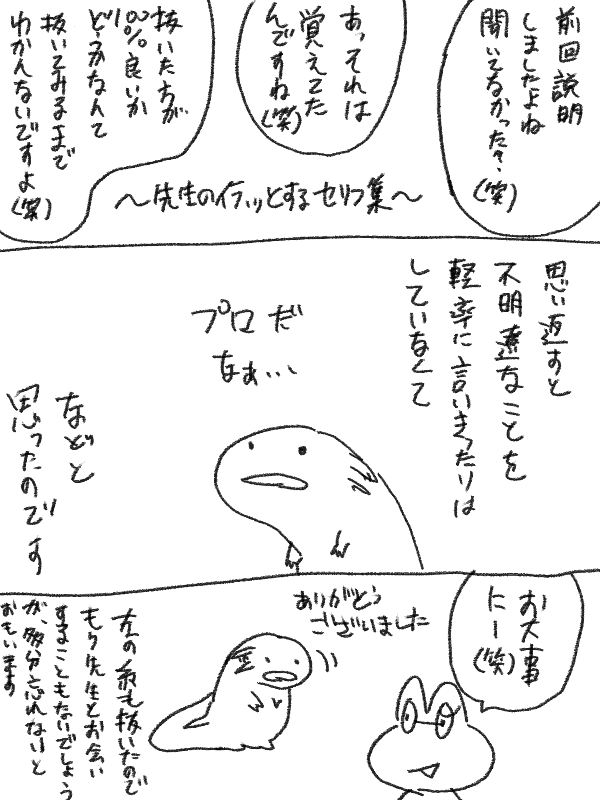 前回説明
しましたよね
聞いてなかった?
(笑)
あっそれは
覚えてた
んですね
(笑)
抜いた方が
100%良いか
どうかなんて
抜いてみるまで
わかんないですよ
(笑)
〜先生のイラッとするセリフ集〜
思い返すと
不明瞭なことを
軽率に言いきったりは
していなくて
プロだ
なぁ…
などと
思ったのです
お大事
にー
(笑)
ありがとう
ございました
左の糸も抜いたので
もう先生とお会い
することもないでしょう
が、多分忘れないと
おもいます